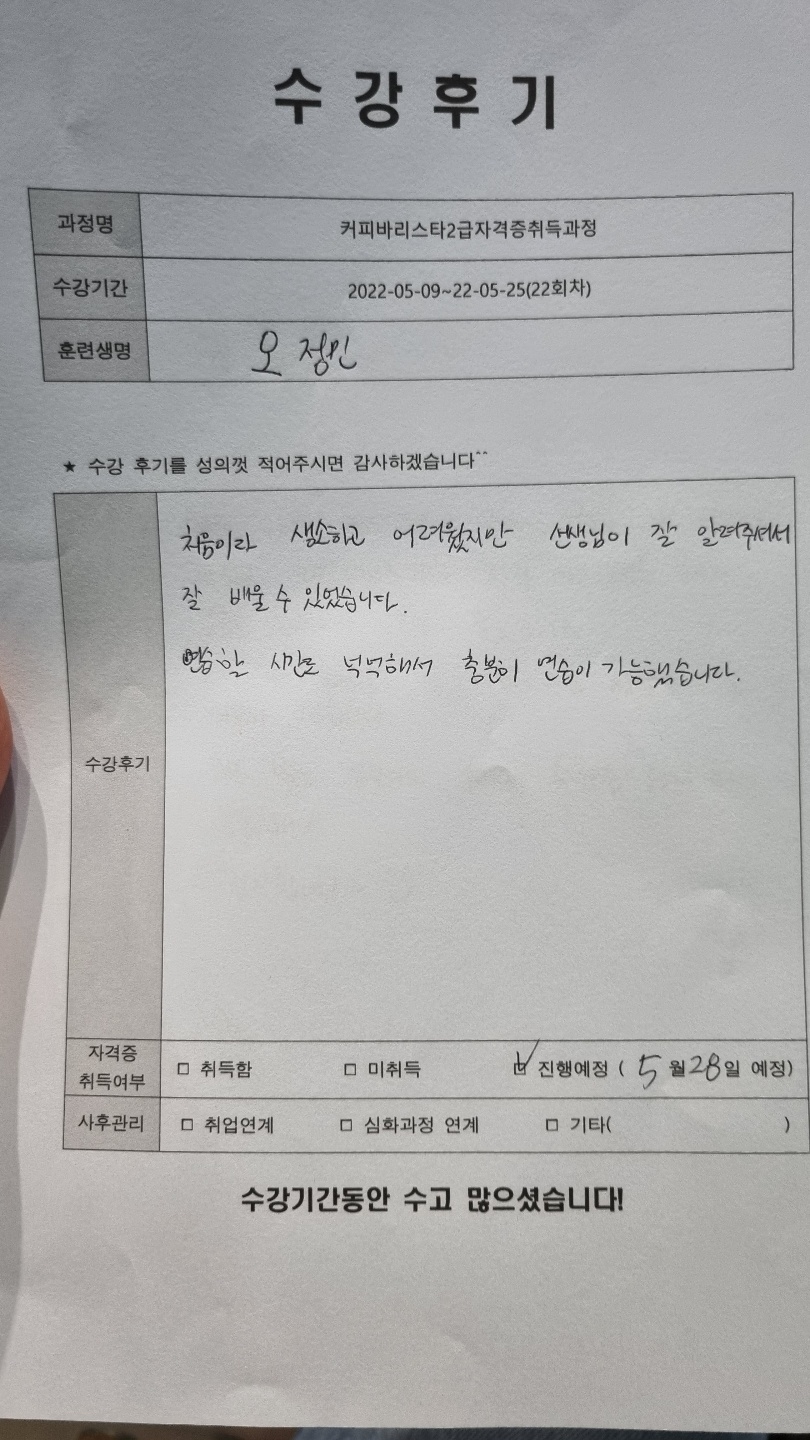 수강후기
과정명 커피바리스타2급자격증취득과정
수강기간 2022-05-09~22-05-25(22회차)
훈련생명 오정민
★ 수강 후기를 성의껏 적어주시면 감사하겠습니다^^
처음이라 생소하고 어려웠지만 선생님이 잘 알려주셔서
잘 배울 수 있었습니다.
연습할 시간도 넉넉해서 충분히 연습이 가능했습니다.
수강후기
자격증
취득여부 □ 취득함 □ 미취득 ☑ 진행예정 ( 5월 28일 예정)
사후관리 □ 취업연계 □ 심화과정 연계 □ 기타( )
수강기간동안 수고 많으셨습니다!